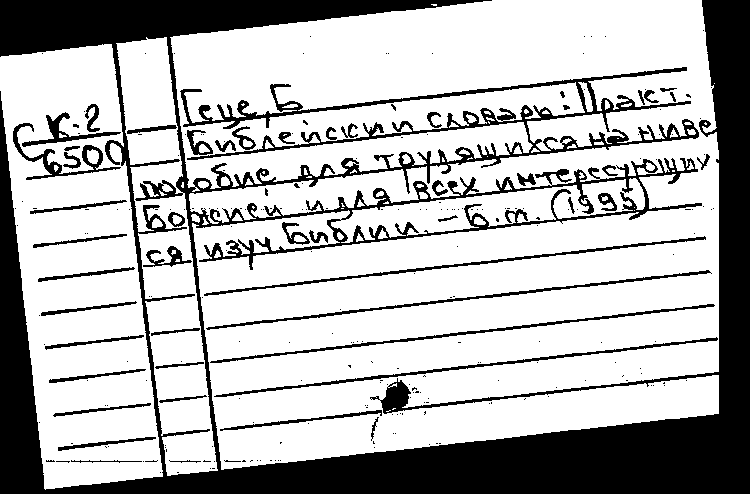 К-2
С 6500
Геце, Б
Библейский словарь: Практ.
пособие для трудящихся на ниве
Божией и для всех интересующих
ся изуч. Библии. – Б.м. (1995)